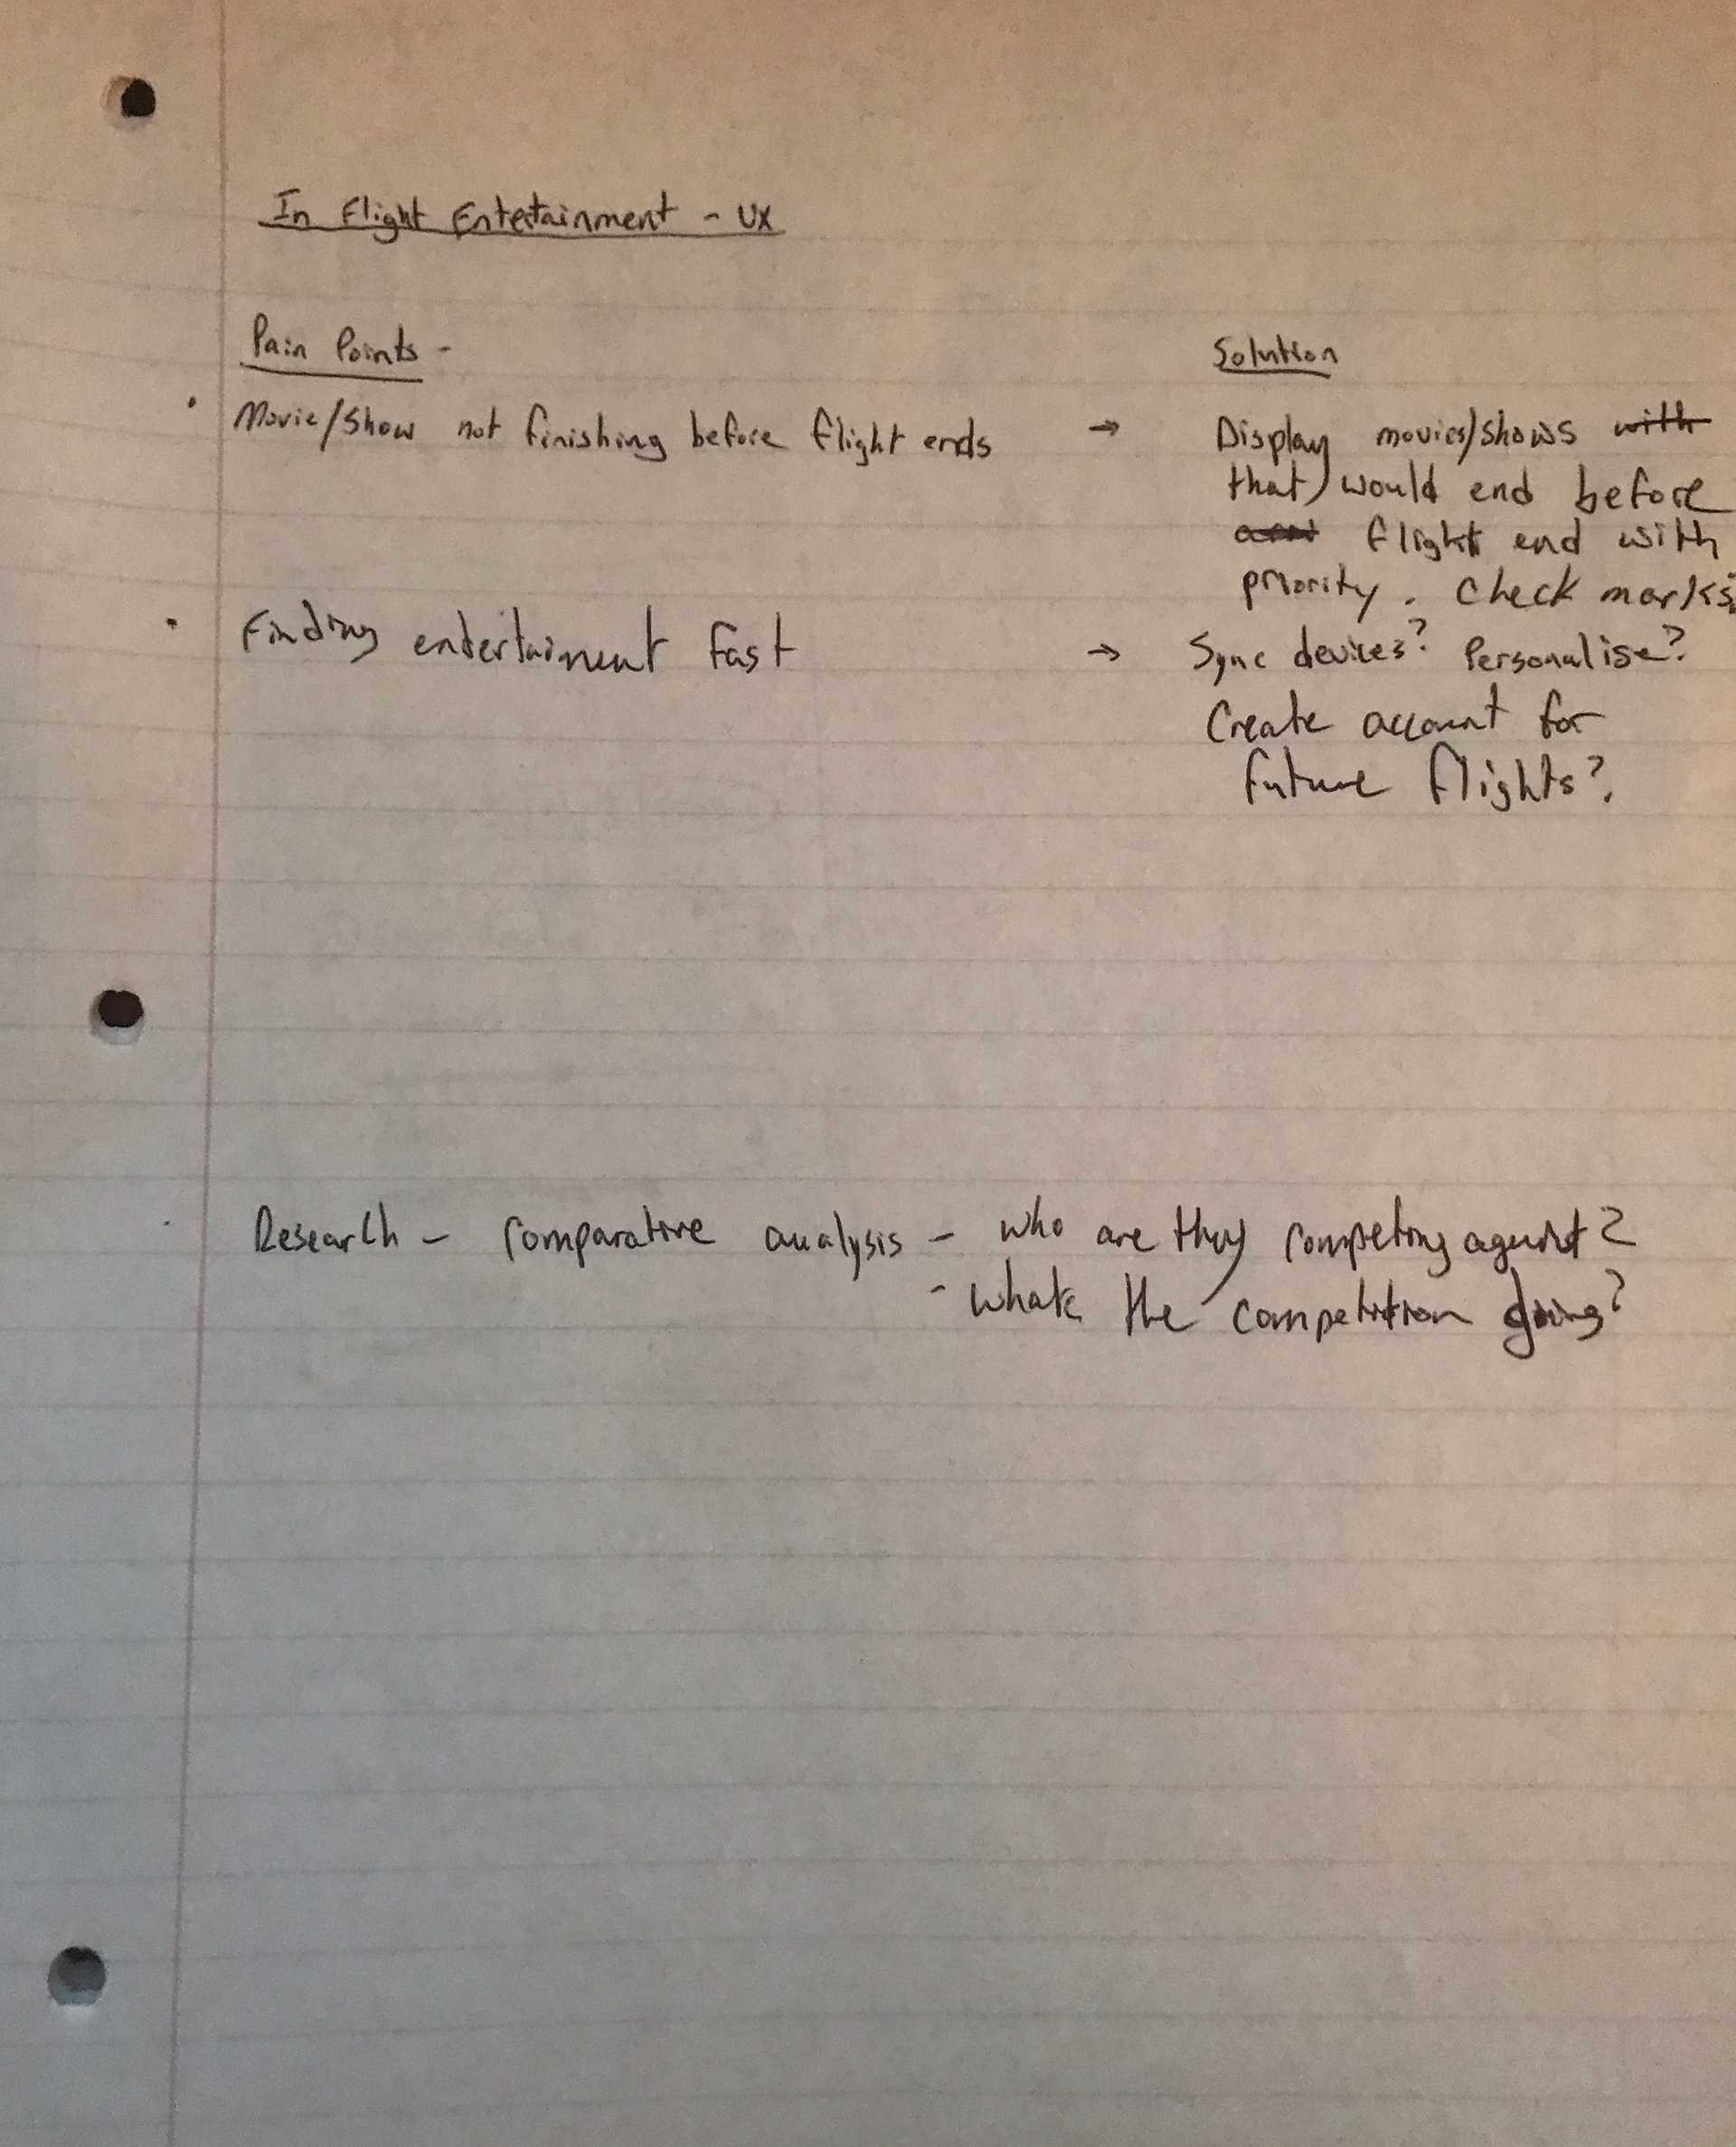 In Flight Entertainment - UX
Pain Points -
Solution
• Movie/Show not finishing before flight ends → Display movies/shows with
that would end before
flight end with
priority. Check marks
• Finding entertainment fast → Sync devices? Personalise?
Create account for
future flights?
Research - comparative analysis - who are they competing against?
- whats the competition doing?